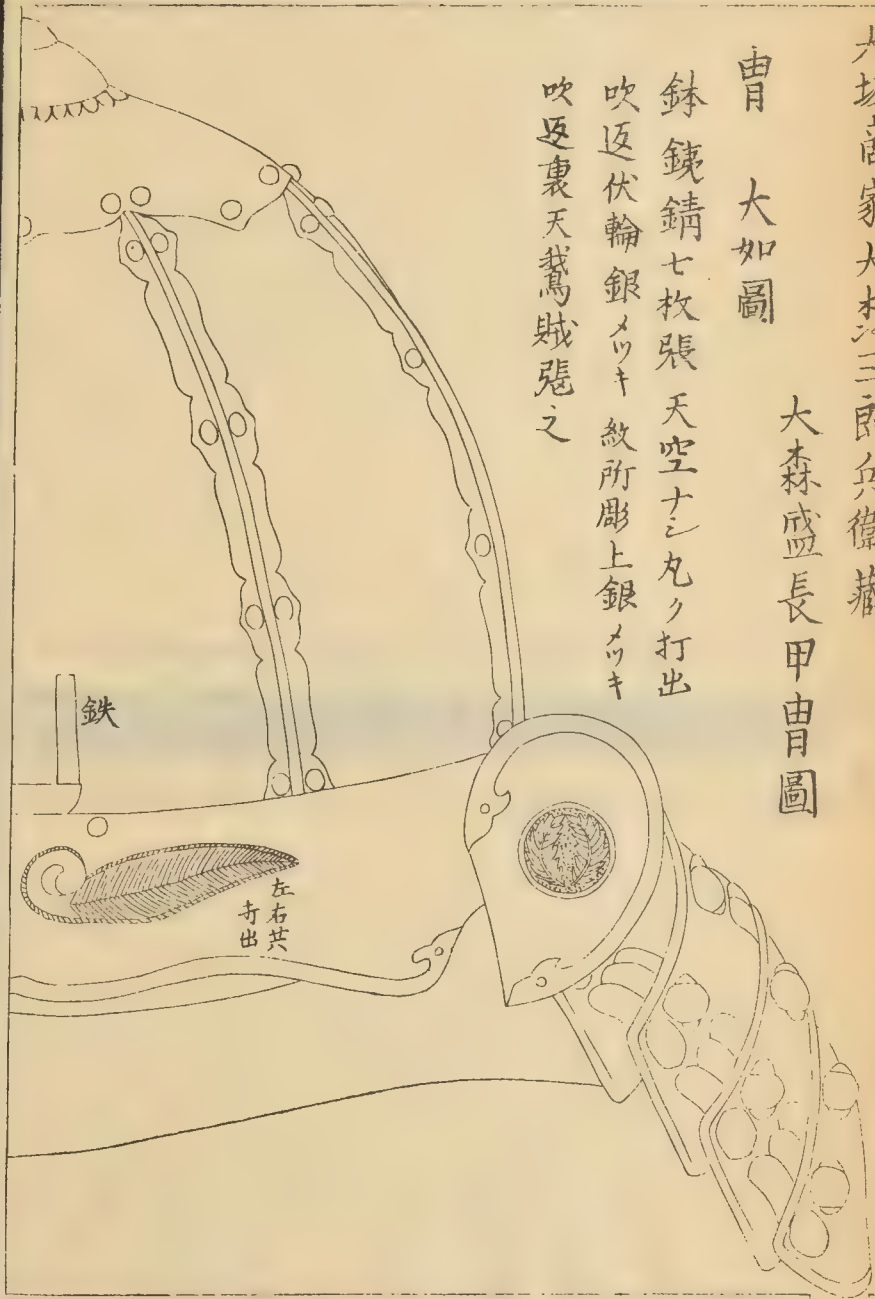 大坂商家大村三郎兵衛藏
大森盛長甲冑圖
冑 大如圖
鉢 銕錆七枚張 天空ナシ丸ク打出
吹返伏輪銀メツキ 紋所彫上銀メツキ
吹返裏天鵞賊張之
鉄
左右共
寺出